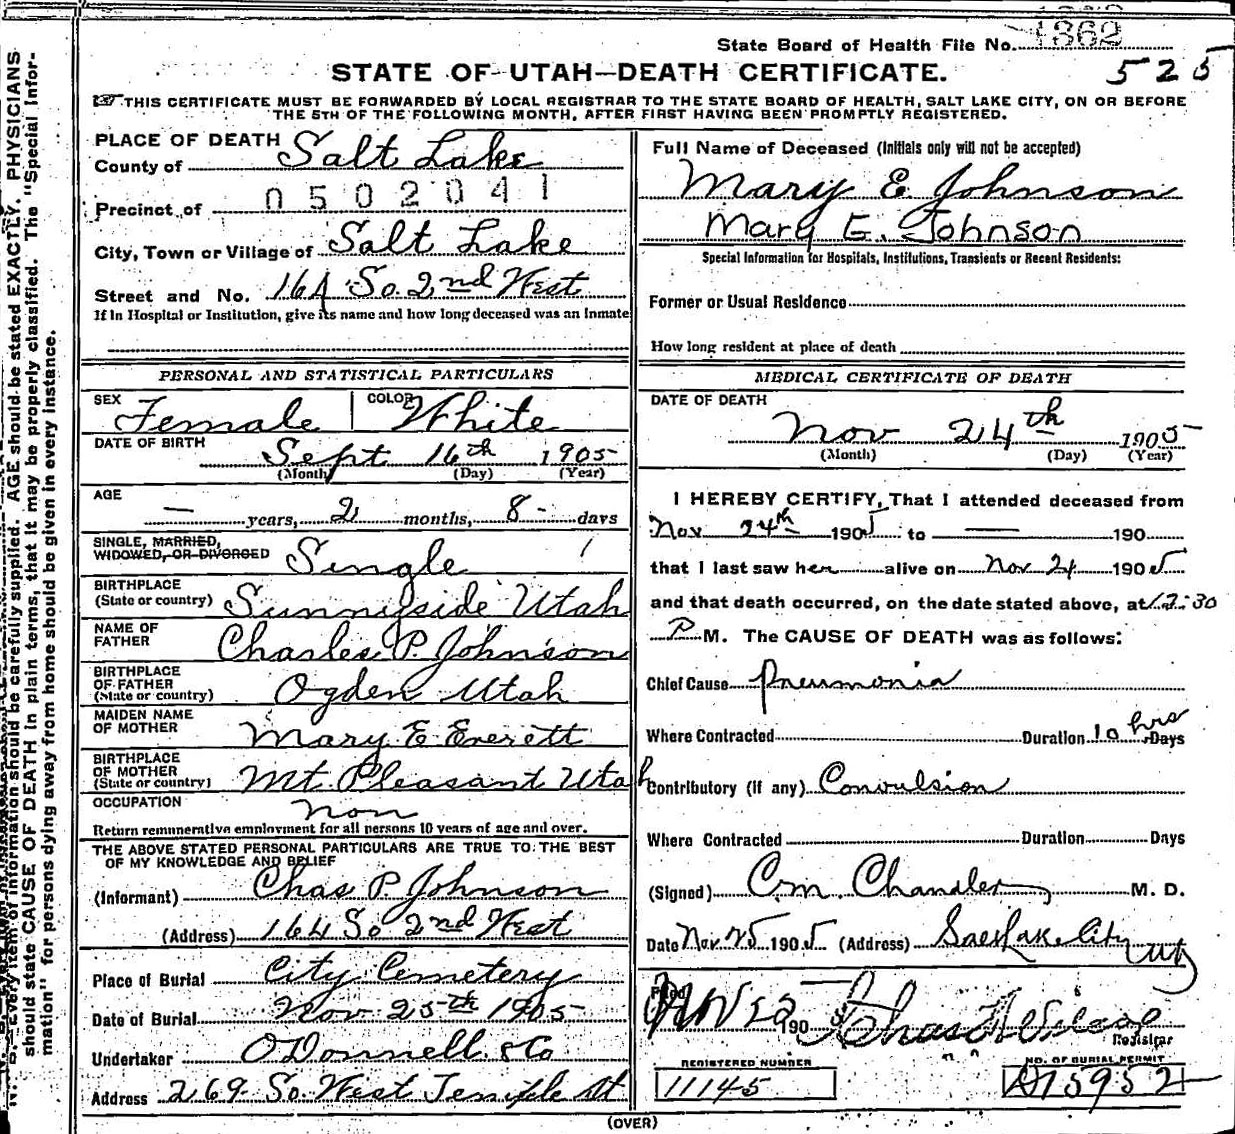 State Board of Health File No. 1362
525
STATE OF UTAH—DEATH CERTIFICATE.
THIS CERTIFICATE MUST BE FORWARDED BY LOCAL REGISTRAR TO THE STATE BOARD OF HEALTH, SALT LAKE CITY, ON OR BEFORE
THE 5TH OF THE FOLLOWING MONTH, AFTER FIRST HAVING BEEN PROMPTLY REGISTERED.
PLACE OF DEATH
County of Salt Lake
Precinct of 0502041
City, Town or Village of Salt Lake
Street and No. 164 So. 2nd West
If in Hospital or Institution, give its name and how long deceased was an Inmate
PERSONAL AND STATISTICAL PARTICULARS
SEX Female COLOR White
DATE OF BIRTH
Sept 16th 1905
(Month) (Day) (Year)
AGE
— years, 2 months, 8 - days
SINGLE, MARRIED,
WIDOWED, OR DIVORCED Single
BIRTHPLACE
(State or country) Sunnyside Utah
NAME OF
FATHER Charles P. Johnson
BIRTHPLACE
OF FATHER
(State or country) Ogden Utah
MAIDEN NAME
OF MOTHER Mary E Everett
BIRTHPLACE
OF MOTHER
(State or country) Mt. Pleasant Utah
OCCUPATION non
Return remunerative employment for all persons 10 years of age and over.
THE ABOVE STATED PERSONAL PARTICULARS ARE TRUE TO THE BEST
OF MY KNOWLEDGE AND BELIEF
(Informant) Chas P. Johnson
(Address) 164 So 2nd West
Place of Burial City Cemetery
Date of Burial Nov 25th 1905
Undertaker O'Donnell & Co
Address 269 So. West Temple St
Full Name of Deceased (Initials only will not be accepted)
Mary E Johnson
Mary E. Johnson
Special Information for Hospitals, Institutions, Transients or Recent Residents:
Former or Usual Residence
How long resident at place of death
MEDICAL CERTIFICATE OF DEATH
DATE OF DEATH
Nov 24th 1905
(Month) (Day) (Year)
I HEREBY CERTIFY, That I attended deceased from
Nov 24th 1905 to — 190
that I last saw her alive on Nov 24 1905
and that death occurred, on the date stated above, at 12:30
P M. The CAUSE OF DEATH was as follows:
Chief Cause Pneumonia
Where Contracted Duration 10 hrs Days
Contributory (if any) Convulsion
Where Contracted Duration Days
(Signed) C M Chandler M. D.
Date Nov 25 1905 (Address) Salt Lake City Ut
Filed NOV 25 1905 Chas H Wilcox
Registrar
REGISTERED NUMBER
11145
NO. OF BURIAL PERMIT
A75952
(OVER)
should state CAUSE OF DEATH in plain terms, that it may be properly classified. The "Special Infor-
mation" for persons dying away from home should be given in every instance.
Every item of information should be carefully supplied. AGE should be stated EXACTLY. PHYSICIANS